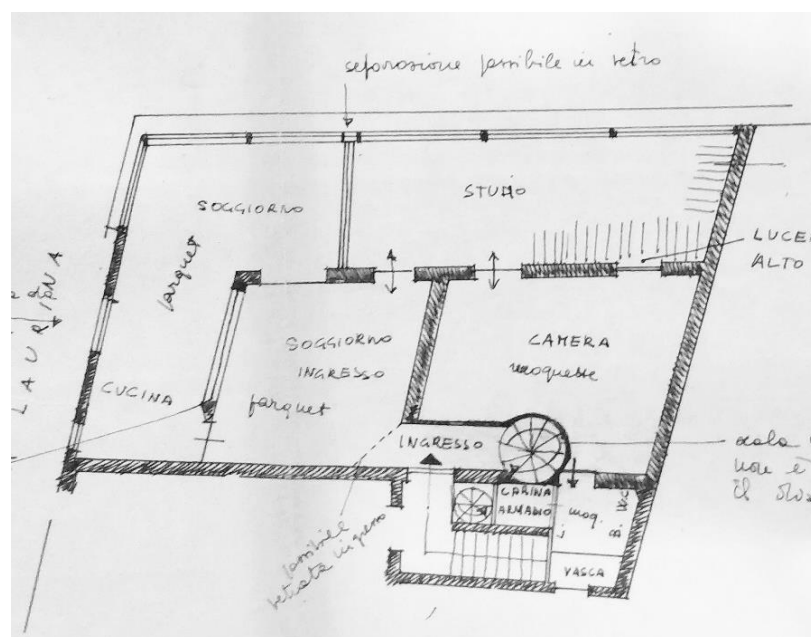 separazione possibile in vetro
SOGGIORNO
STUDIO
parquet
LUCE
ALTO
SOGGIORNO
INGRESSO
parquet
CAMERA
moquette
CUCINA
INGRESSO
scala
non è
il
CABINA
ARMADIO
moq.
B.
VASCA
possibile
vetrata ingresso